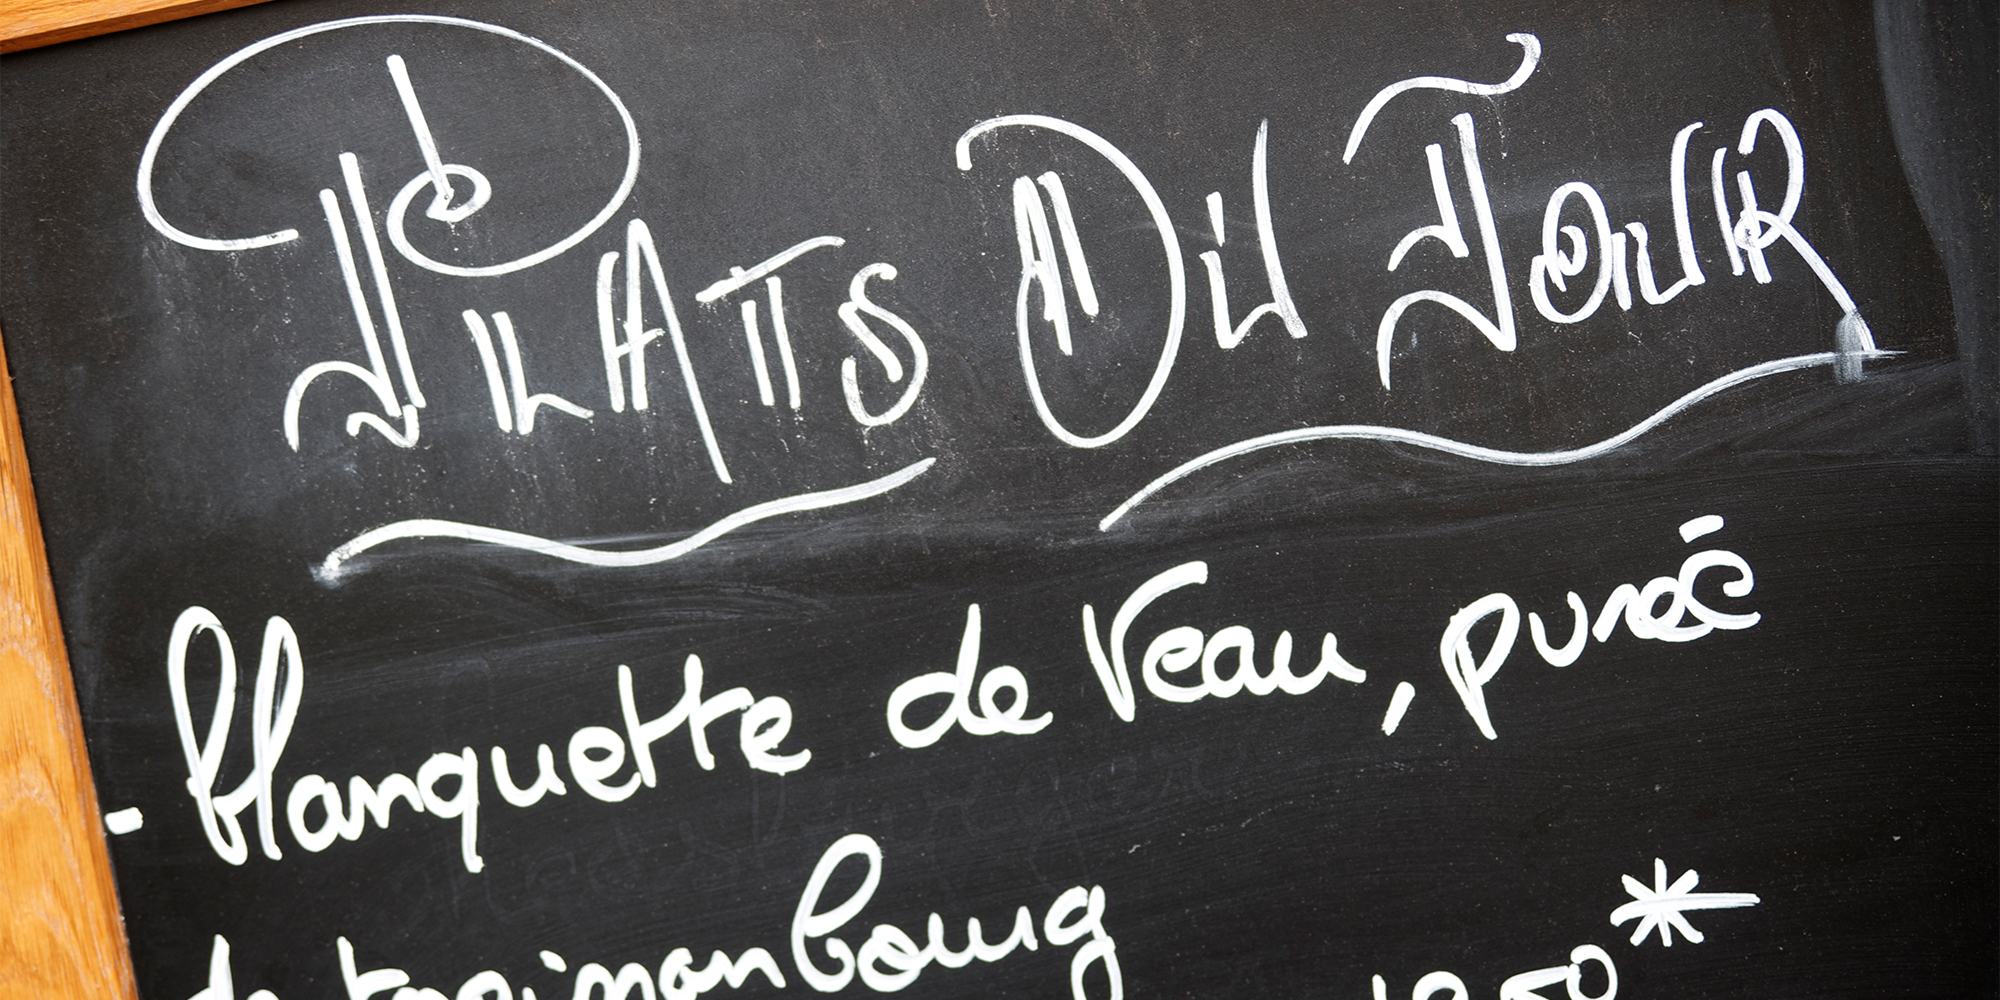 PLATS DU JOUR
- blanquette de Veau, purée
de topinambourg *